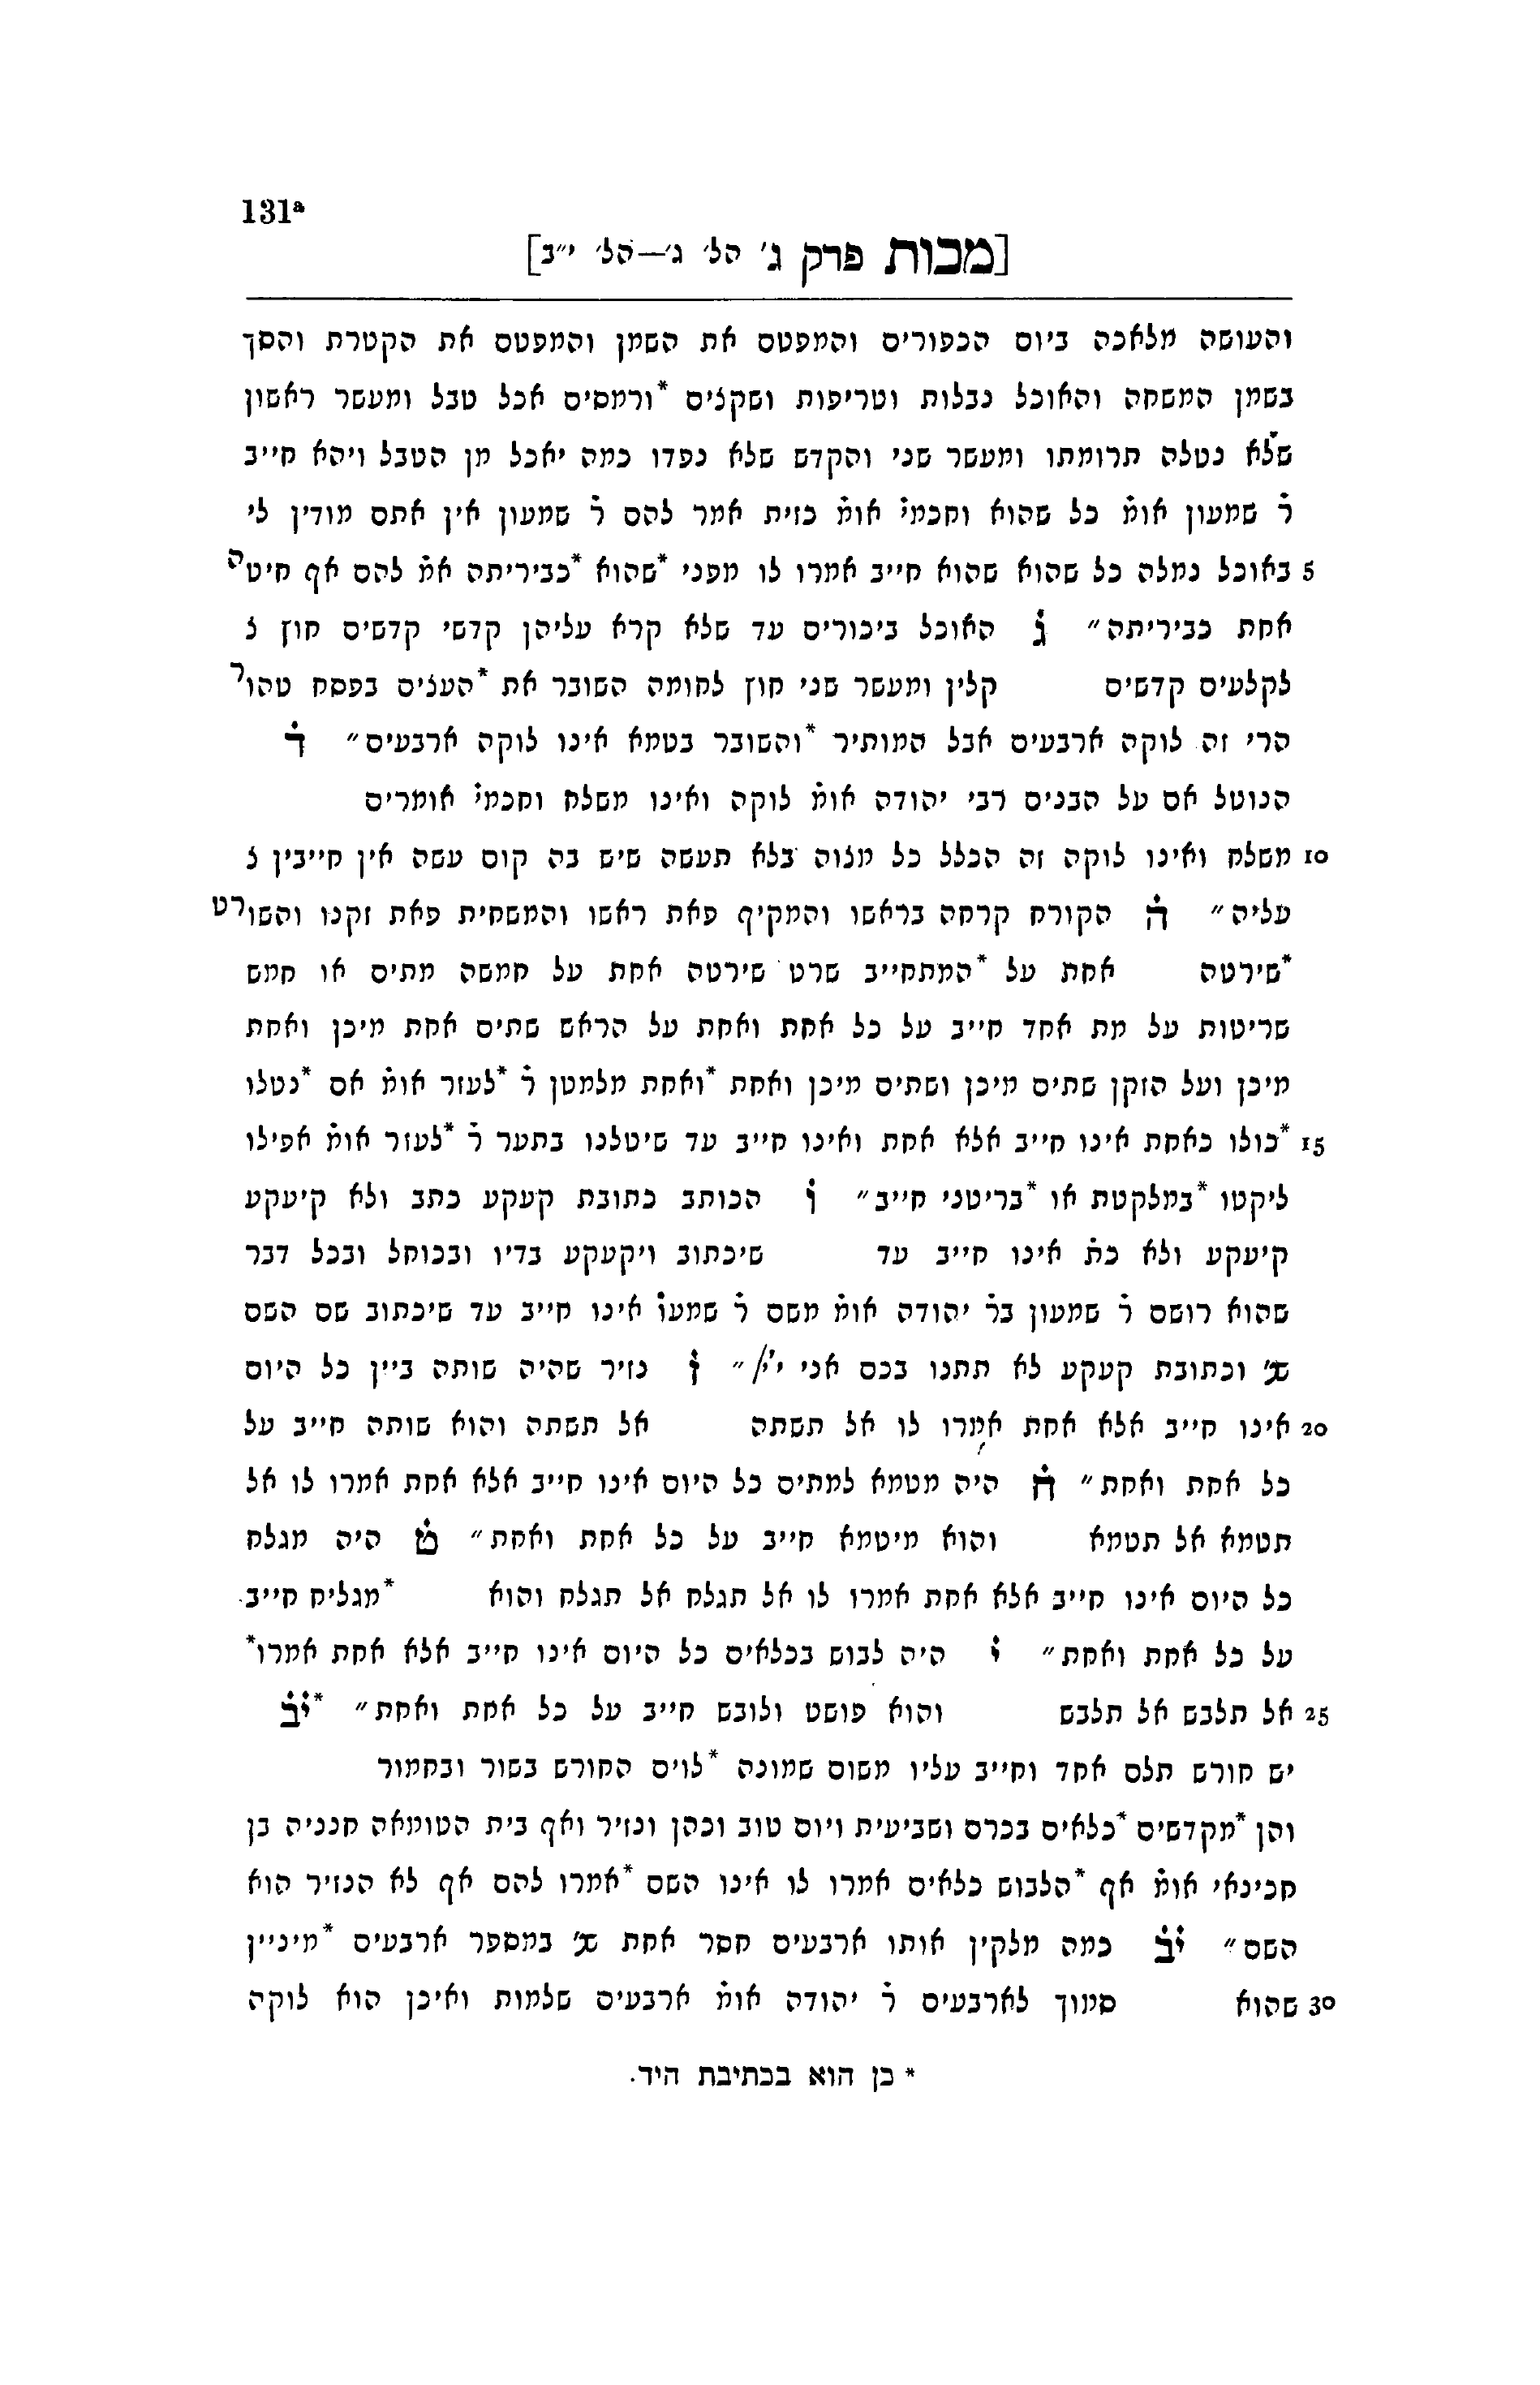 131ª
[מכות פרק ג' הל' ג'—הל' י"ב]
והעושה מלאכה ביום הכפורים והמפטם את השמן והמפטם את הקטרת והסך
בשמן המשחה והאוכל נבלות וטריפות ושקצים *ורמסים אכל טבל ומעשר ראשון
שלא נטלה תרומתו ומעשר שני והקדש שלא נפדו כמה יאכל מן הטבל ויהא חייב
ר̇ שמעון אומ̇ כל שהוא וחכמי̇ אומ̇ כזית אמר להם ר̇ שמעון אין אתם מודין לי
5 באוכל נמלה כל שהוא שהוא חייב אמרו לו מפני *שהוא *כביריתה אמ̇ להם אף חיטה
אחת כביריתה״ ג̇ האוכל ביכורים עד שלא קרא עליהן קדשי קדשים חוץ ל
לקלעים קדשים קלין ומעשר שני חוץ לחומה השובר את *העצים בפסח טהור
הרי זה לוקה ארבעים אבל המותיר *והשובר בטמא אינו לוקה ארבעים״ ד̇
הנוטל אם על הבנים רבי יהודה אומ̇ לוקה ואינו משלח וחכמי̇ אומרים
10 משלח ואינו לוקה זה הכלל כל מצוה בלא תעשה שיש בה קום עשה אין חייבין ל
עליה״ ה̇ הקורח קרחה בראשו והמקיף פאת ראשו והמשחית פאת זקנו והשורט
*שירטה אחת על *המתחייב שרט שירטה אחת על חמשה מתים או חמש
שריטות על מת אחד חייב על כל אחת ואחת על הראש שתים אחת מיכן ואחת
מיכן ועל הזקן שתים מיכן ושתים מיכן ואחת *ואחת מלמטן ר̇ *לעזר אומ̇ אם *נטלו
15 *כולו כאחת אינו חייב אלא אחת ואינו חייב עד שיטלנו בתער ר̇ *לעזר אומ̇ אפילו
ליקטו *במלקטת או *בריטני חייב״ ו̇ הכותב כתובת קעקע כתב ולא קיעקע
קיעקע ולא כת̇ אינו חייב עד שיכתוב ויקעקע בדיו ובכוחל ובכל דבר
שהוא רושם ר̇ שמעון בר̇ יהודה אומ̇ משם ר̇ שמעו̇ אינו חייב עד שיכתוב שם השם
שנ' וכתובת קעקע לא תתנו בכם אני י׳י׳״ ז̇ נזיר שהיה שותה ביין כל היום
20 אינו חייב אלא אחת אמרו לו אל תשתה אל תשתה והוא שותה חייב על
כל אחת ואחת״ ח̇ היה מטמא למתים כל היום אינו חייב אלא אחת אמרו לו אל
תטמא אל תטמא והוא מיטמא חייב על כל אחת ואחת״ ט̇ היה מגלח
כל היום אינו חייב אלא אחת אמרו לו אל תגלח אל תגלח והוא *מגליח חייב
על כל אחת ואחת״ י̇ היה לבוש בכלאים כל היום אינו חייב אלא אחת אמרו*
25 אל תלבש אל תלבש והוא פושט ולובש חייב על כל אחת ואחת״ *י̇ב̇
יש חורש תלם אחד וחייב עליו משום שמונה *לוים החורש בשור ובחמור
והן *מקדשים *כלאים בכרם ושביעית ויום טוב וכהן ונזיר ואף בית הטומאה חנניה בן
חכינאי אומ̇ אף *הלבוש כלאים אמרו לו אינו השם *אמרו להם אף לא הנזיר הוא
השם״ י̇ב̇ כמה מלקין אותו ארבעים חסר אחת שנ' במספר ארבעים *מיניין
30 שהוא סמוך לארבעים ר̇ יהודה אומ̇ ארבעים שלמות ואיכן הוא לוקה
* כן הוא בכתיבת היד.